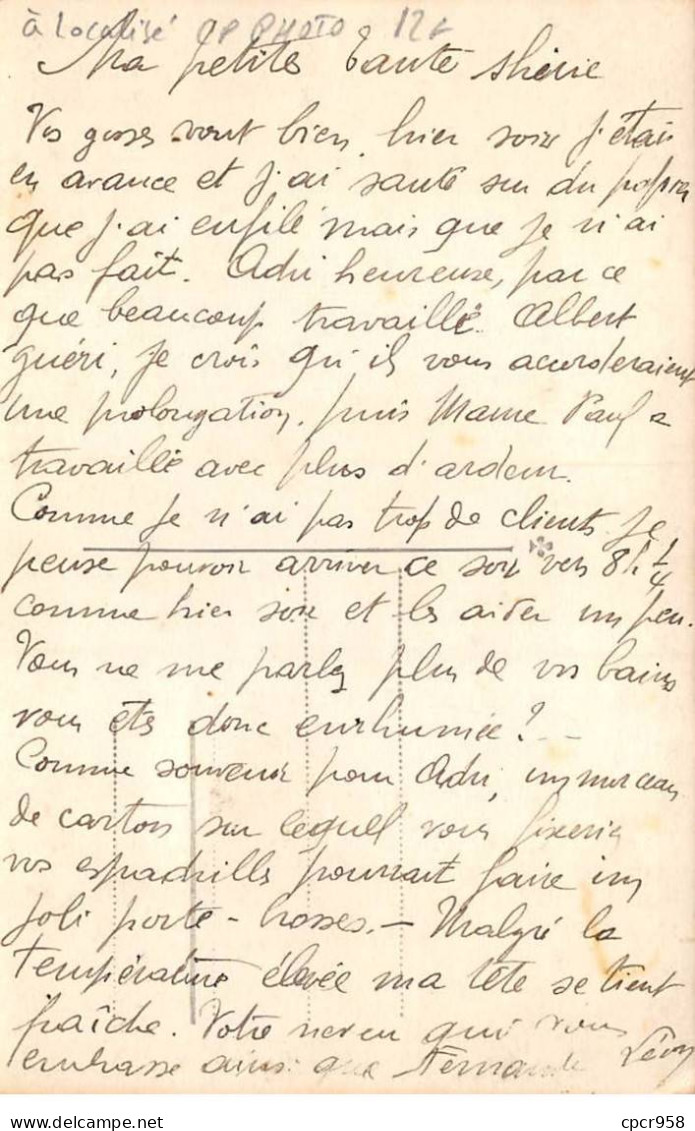 à localisé CP PHOTO 12f
Ma petites tante shérie
Vos gosses vont bien, hier soir j'étais
en avance et j'ai sauté sur du
que j'ai enfilé mais que je n'ai
pas fait. Adri heureuse, par ce
que beaucoup travaillé. Albert
guéri, je crois qu'ils vous accorderaient
une prolongation, puis Mame Paul a
travaillé avec plus d'ardeur.
Comme je n'ai pas trop de clients je
pense pouvoir arriver ce soir vers 8h 1/4
comme hier soir et les aider un peu.
Vous ne me parlez plus de vos bains
vous êtes donc enrhumée? -
Comme souvenir pour Adri, un morceau
de carton sur lequel vous fixerez
vos espadrilles pourrait faire un
joli porte-brosses. - Malgré la
température élevée ma tête se tient
fraîche. Votre neveu qui vous
embrasse ainsi que Fernande
cpcr958